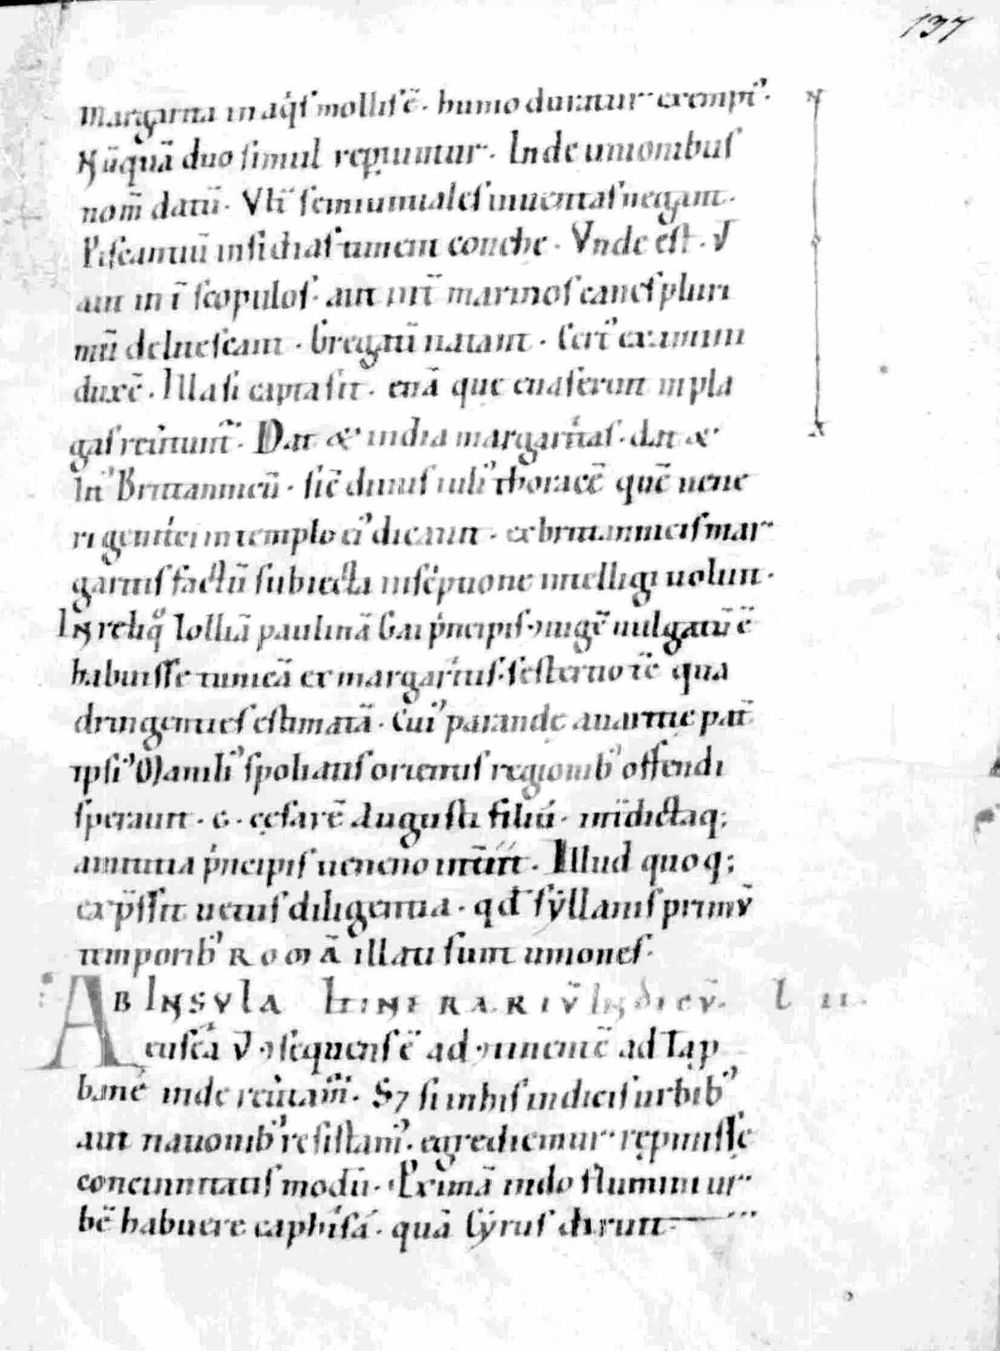 137
Margarita in aq̄s mollis ē. humo duratur exempt᾽.
Nūquā duo simul reꝑiuntur. Inde unionibus
nom̄ datū. Vlt̄ semiunciales inuentas negant.
Piscantiū insidias timent conche. Vnde est. V̄
aut in t̄ scopulos. aut int̄ marinos canes pluri
mū delitescant. Gregatī natant. Cert᾽ examini
dux ē. Illa si capta sit. etiā que euaserunt in pla
gas reūtunt᾽. Dat & india margaritas. dat &
litt᾽ Brittannicū. sic̄ diuus iuli᾽ thoracē quē uene
ri genitrici in templo ei᾽ dicauit. ex britannicis mar
garitis factū subiecta inscptione intelligi uoluit.
In reliq̊ Iolliā paulinā Gai pͥncipis ɔiugē uulgatū ē
habuisse tunicā ex margaritis. sestertio tc̄ qua
dringenties estimatā. Cui᾽ parandę auaritie pat̄
ipsi᾽ Manili᾽ spoliatis orientis regionib᾽ offendi
sperauit. G. cęsarē Augusti filiū. int̄dictaq;
amititia pͥncipis ueneno int̄iit. Illud quoq;
exp̄ssit uetus diligentia. qd̄ syllanis primū
temporib᾽ ROMĀ illati sunt uniones.
AB INSVLA ITINERARIV̄ INDICV̄. L II.
eusca V̄ ɔsequens ē ad ɔtinentē ad Tap
banē inde reūtam᾽. S7 si in his indicis urbib᾽
aut nationib᾽ resistam᾽. egrediemur repmissę
concinnitatis modū. Pximā indo flumini ur
bē habuere caphisā. quā Cyrus diruit.